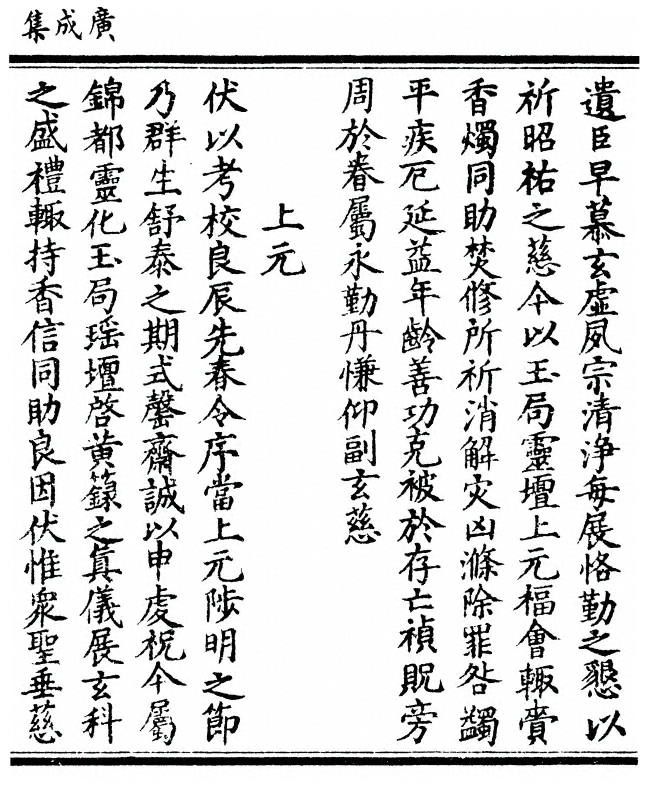 廣成集
遺臣早慕玄虛夙宗清淨每展恪勤之懇以
祈昭祐之慈今以玉局靈壇上元福會輙賷
香燭同助焚修所祈消解灾凶滌除罪咎蠲
平疾厄延益年齡善功克被於存亡禎貺旁
周於眷屬永勤丹慊仰副玄慈
上元
伏以考校良辰先春令序當上元陟明之節
乃群生舒泰之期式罄齋誠以申虔祝今屬
錦都靈化玉局瑶壇啓黄籙之真儀展玄科
之盛禮輙持香信同助良因伏惟衆聖垂慈